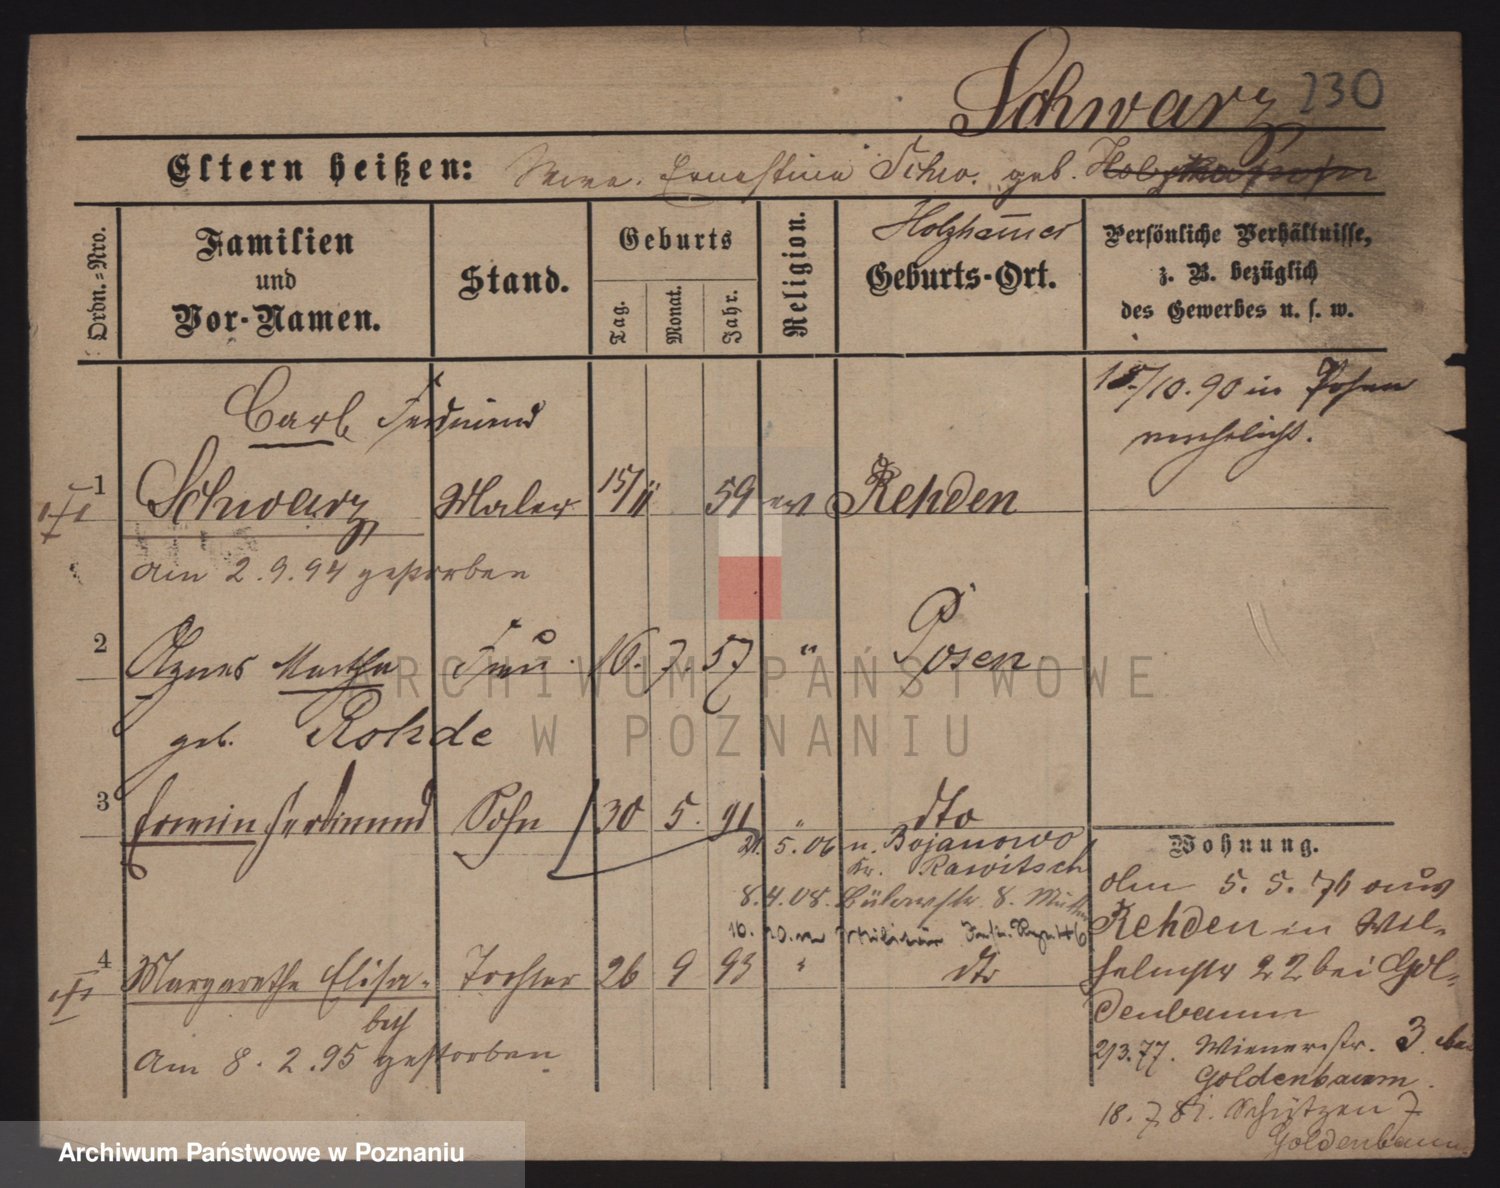 Schwarz 230
Eltern heißen: Ernestine Schw. geb.
Holzhauer
Ordn.-Nro.
Familien und Vor-Namen.
Stand.
Geburts
Tag. Monat. Jahr.
Religion.
Geburts-Ort.
Persönliche Verhältnisse, z. B. bezüglich des Gewerbes u. s. w.
Carl Ferdinand
18/10. 90 in Posen
verehelicht.
1 Schwarz Maler 15/11 59 ev Rehden
am 2. 9. 94 gestorben
2 Agnes Martha Frau 16. 7. 57 " Posen
geb. Rohde
3 Erwin Ferdinand Sohn 30 5. 91 " dto
21. 5. 06 n. Bojanowo
Kr. Rawitsch
8. 4. 08. Bülowstr. 8. Mutter
4 Margarethe Elisa- Tochter 26 9 93 " dto
beth
am 8. 2. 95 gestorben
Wohnung.
5. 5. 76 aus
Rehden in Wil-
helmstr 22 bei Gol-
denbaum
2/3. 77. Wienerstr. 3. bei
Goldenbaum.
18. 7. 81. Schützen 7
Goldenbaum
ARCHIWUM PAŃSTWOWE
W POZNANIU
Archiwum Państwowe w Poznaniu